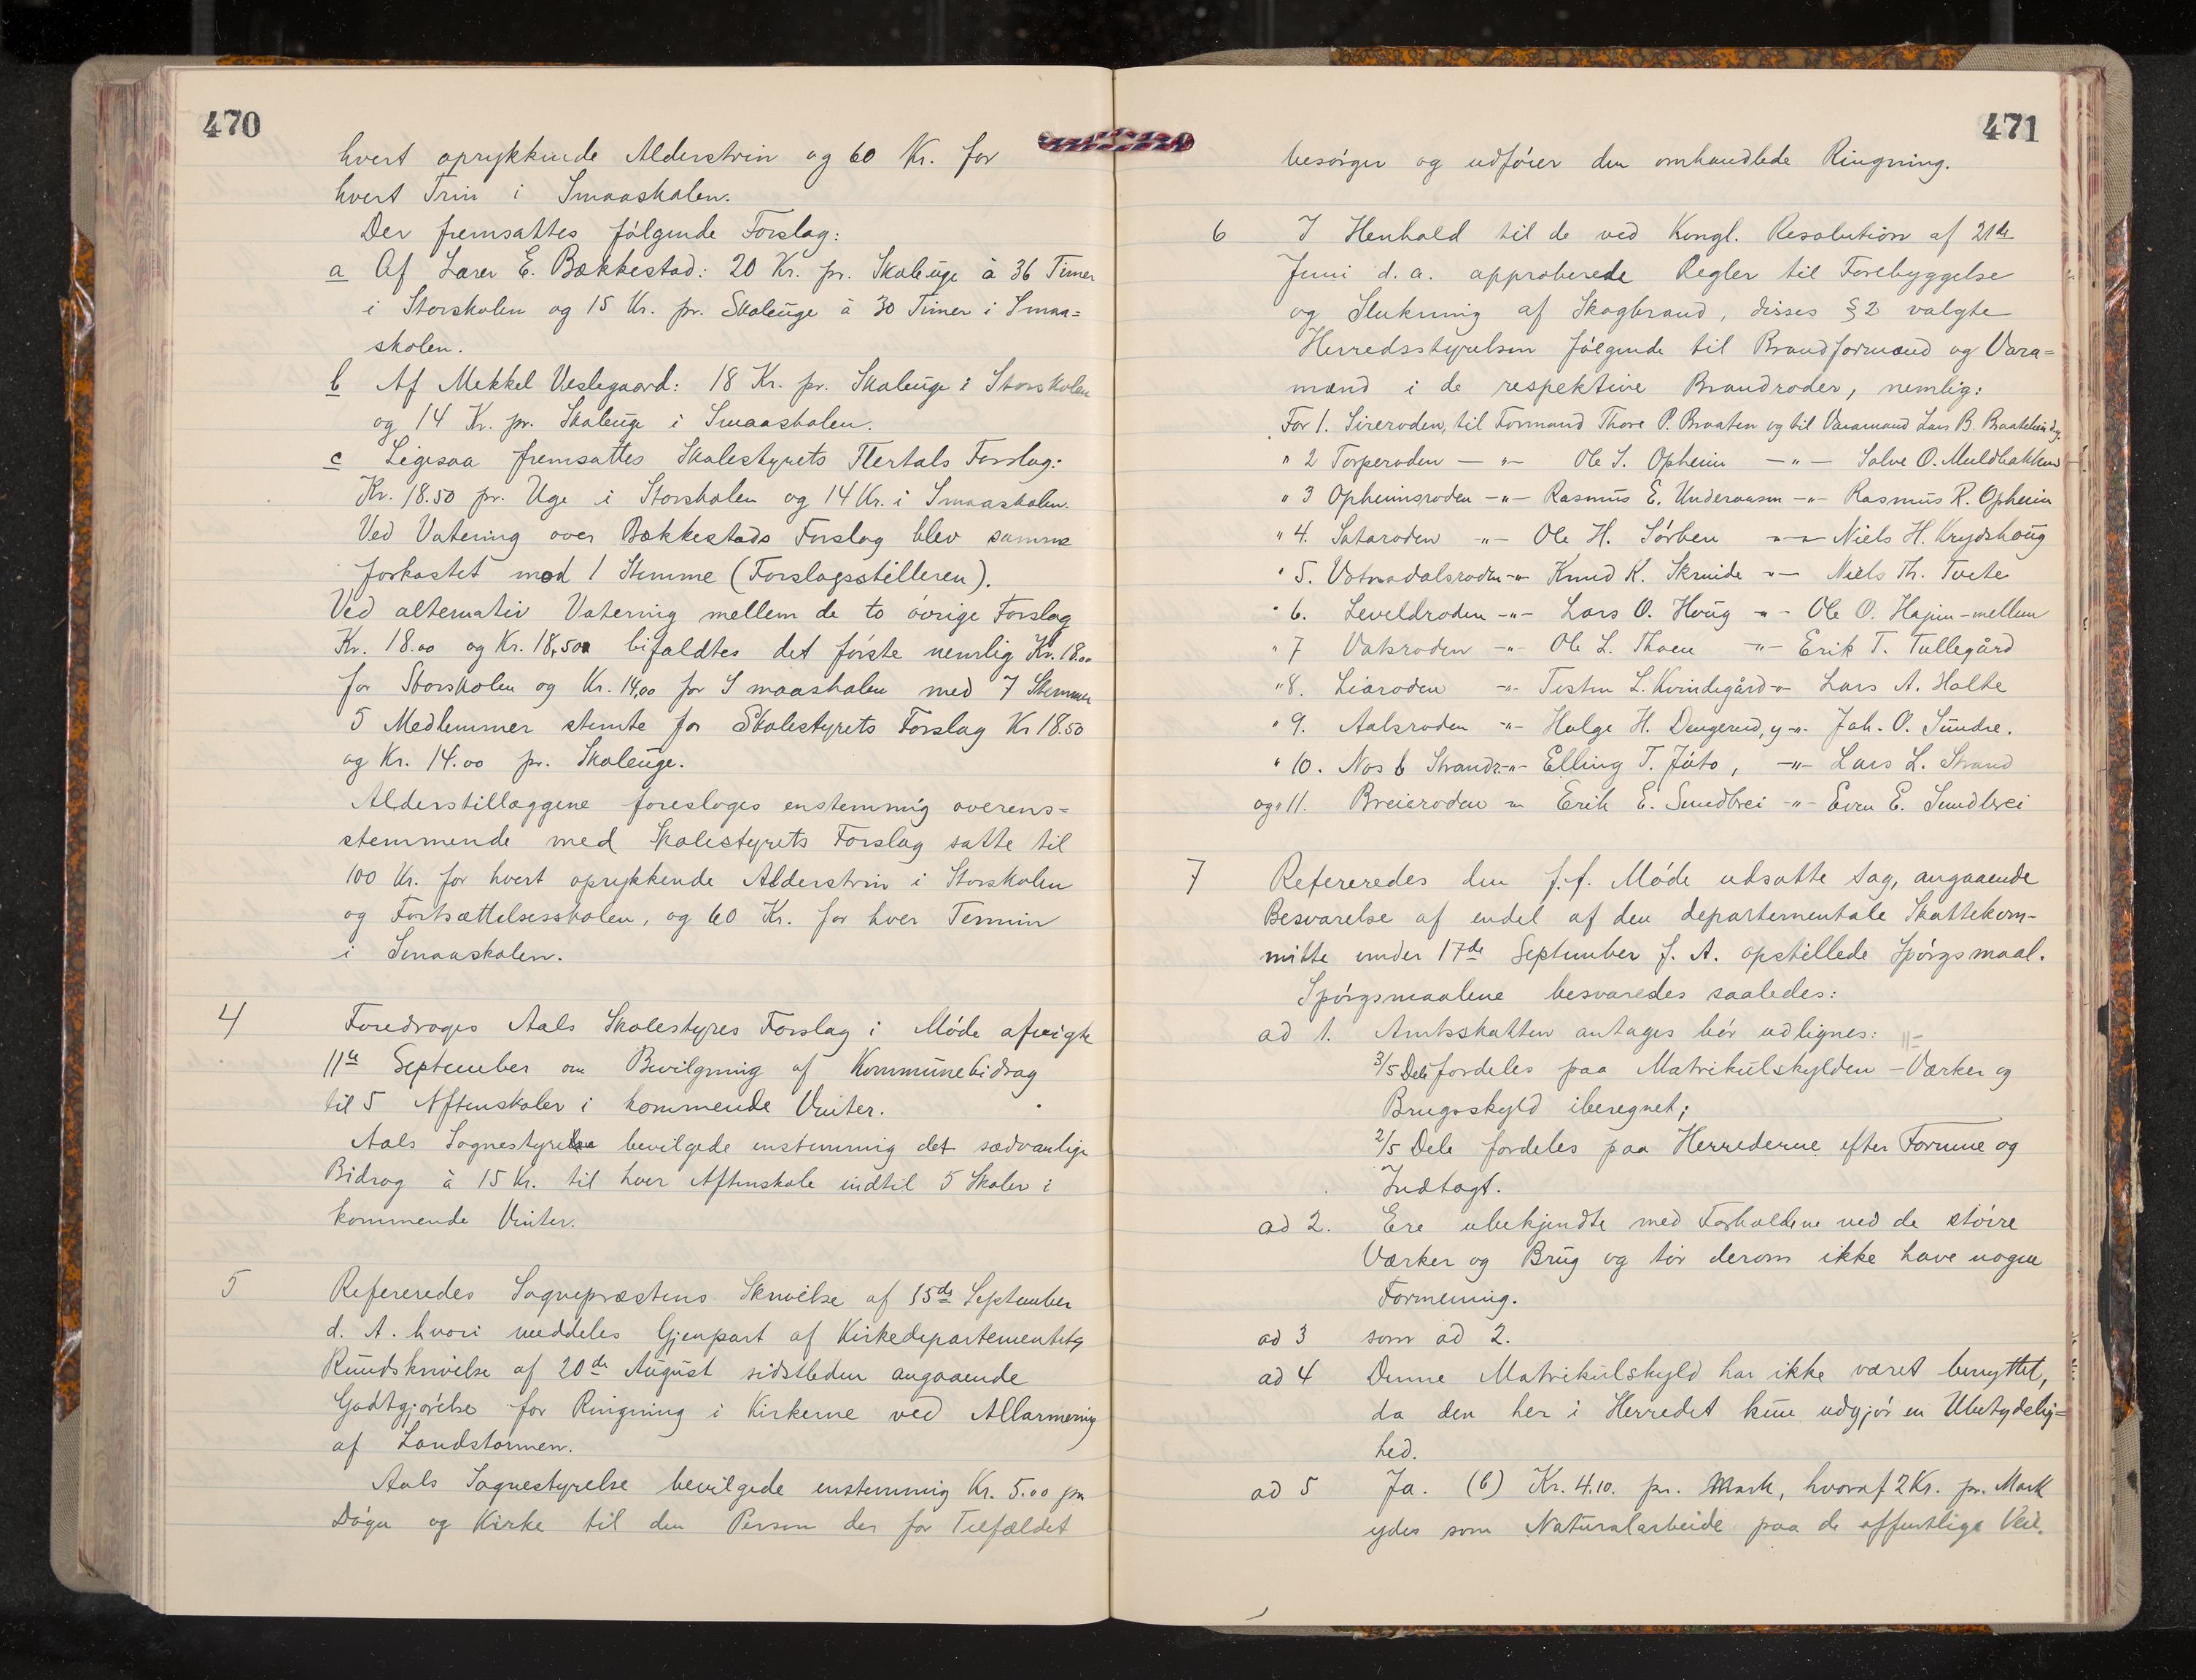 470
hvert oprykkende Alderstrin og 60 Kr. for
hvert Trin i Smaaskolen.
Der fremsattes følgende Forslag:
a Af Lærer E. Bækkestad: 20 Kr. pr. Skoleuge à 36 Timer
i Storskolen og 15 Kr. pr. Skoleuge à 30 Timer i Smaa=
skolen.
b Af Mekkel Veslegaard: 18 Kr. pr. Skoleuge i Storskolen
og 14 Kr. pr. Skoleuge i Smaaskolen.
c Ligesaa fremsattes Skolestyrets Flertals Forslag:
Kr. 18.50 pr. Uge i Storskolen og 14 Kr. i Smaaskolen.
Ved Votering over Bækkestads Forslag blev samme
forkastet mod 1 Stemme (Forslagsstilleren).
Ved alternativ Votering mellem de to øvrige Forslag
Kr. 18.00 og Kr. 18,50 bifaldtes det første nemlig Kr. 18.00
for Storskolen og Kr. 14,00 for Smaaskolen med 7 Stemmer
5 Medlemmer stemte for Skolestyrets Forslag Kr 18.50
og Kr. 14.00 pr. Skoleuge.
Alderstillæggene foresloges enstemmig overens=
stemmende med Skolestyrets Forslag satte til
100 Kr. for hvert oprykkende Alderstrin i Storskolen
og Fortsættelsesskolen, og 60 Kr. for hver Termin
i Smaaskolen.
4 Foredroges Aals Skolestyres Forslag i Møde afvigte
11te September om Bevilgning af Kommunebidrag
til 5 Aftenskoler i kommende Vinter.
Aals Sognestyrelse bevilgede enstemmig det sædvanlige
Bidrag à 15 Kr. til hver Aftenskole indtil 5 Skoler i
kommende Vinter.
5 Refereredes Sognepræstens Skrivelse af 15de September
d. A. hvori meddeles Gjenpart af Kirkedepartementets
Rundskrivelse af 20de August sidstleden angaaende
Godtgjørelse for Ringning i Kirkerne ved Allarmering
af Landstormen.
Aals Sognestyrelse bevilgede enstemmig Kr. 5.00 pr.
Døgn og Kirke til den Person der for Tilfældet
471
besørger og udfører den omhandlede Ringning.
6 I Henhold til de ved Kongl. Resolution af 21de
Juni d. a. approberede Regler til Forebyggelse
og Slukning af Skogbrand, disses § 2 valgte
Herredsstyrelsen følgende til Brandformænd og Vara=
mænd i de respektive Brandroder, nemlig:
For 1. Sireroden, til Formand Thore P. Braaten og til Varamand Lars B.
" 2 Torperoden — " — Ole S. Opheim — " — Solve O. Muldbakken
" 3 Opheimsroden — " — Rasmus E. — " — Rasmus R. Opheim
" 4. Sataroden — " — Ole H. Sørben — " — Niels H. Krydshoug
" 5. Votnadalsroden — " — Knud K. Skrinde — " — Niels Th. Tveite
" 6. Leveldroden — " — Lars O. Houg — " — Ole O. -mellem
" 7 Vatsroden — " — Ole L. Thoen — " — Erik T. Tullegård
" 8. Liaroden — " — L. Kvindegård — " — Lars A. Holte
" 9. Aalsroden — " — Helge H. Dengerud, y — " — Joh. O. Sundre.
" 10. Nos & Strandr. — " — Elling T. , — " — Lars L. Strand
og " 11. Breieroden — " — Erik E. Sundbrei — " — Even E. Sundbrei
7 Refereredes den f. f. Møde udsatte Sag, angaaende
Besvarelse af endel af den departementale Skattekom-
mitte under 17de September f. A. opstillede Spørgsmaal.
Spørgsmaalene besvaredes saaledes:
ad 1. Amtsskatten antages bør udlignes:
3/5 Dele fordeles paa Matrikulskylden – Værker og
Brugsskyld iberegnet;
2/5 Dele fordeles paa Herrederne efter Formue og
Indtægt.
ad 2. Ere ubekjendte med Forholdene ved de større
Værker og Brug og tør derom ikke have nogen
Formening.
ad 3 som ad 2.
ad 4 Denne Matrikulskyld har ikke været benyttet,
da den her i Herredet kun udgjør en Ubetydelig=
hed.
ad 5 Ja. (6) Kr. 4.10. pr. Mark, hvoraf 2 Kr. pr. Mark
ydes som Naturalarbeide paa de offentlige Veie.